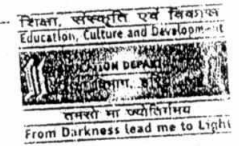 शिक्षा, संस्कृति एवं विकास
Education, Culture and Development
DEPART
तमसो मा ज्योतिर्गमय
From Darkness lead me to Light